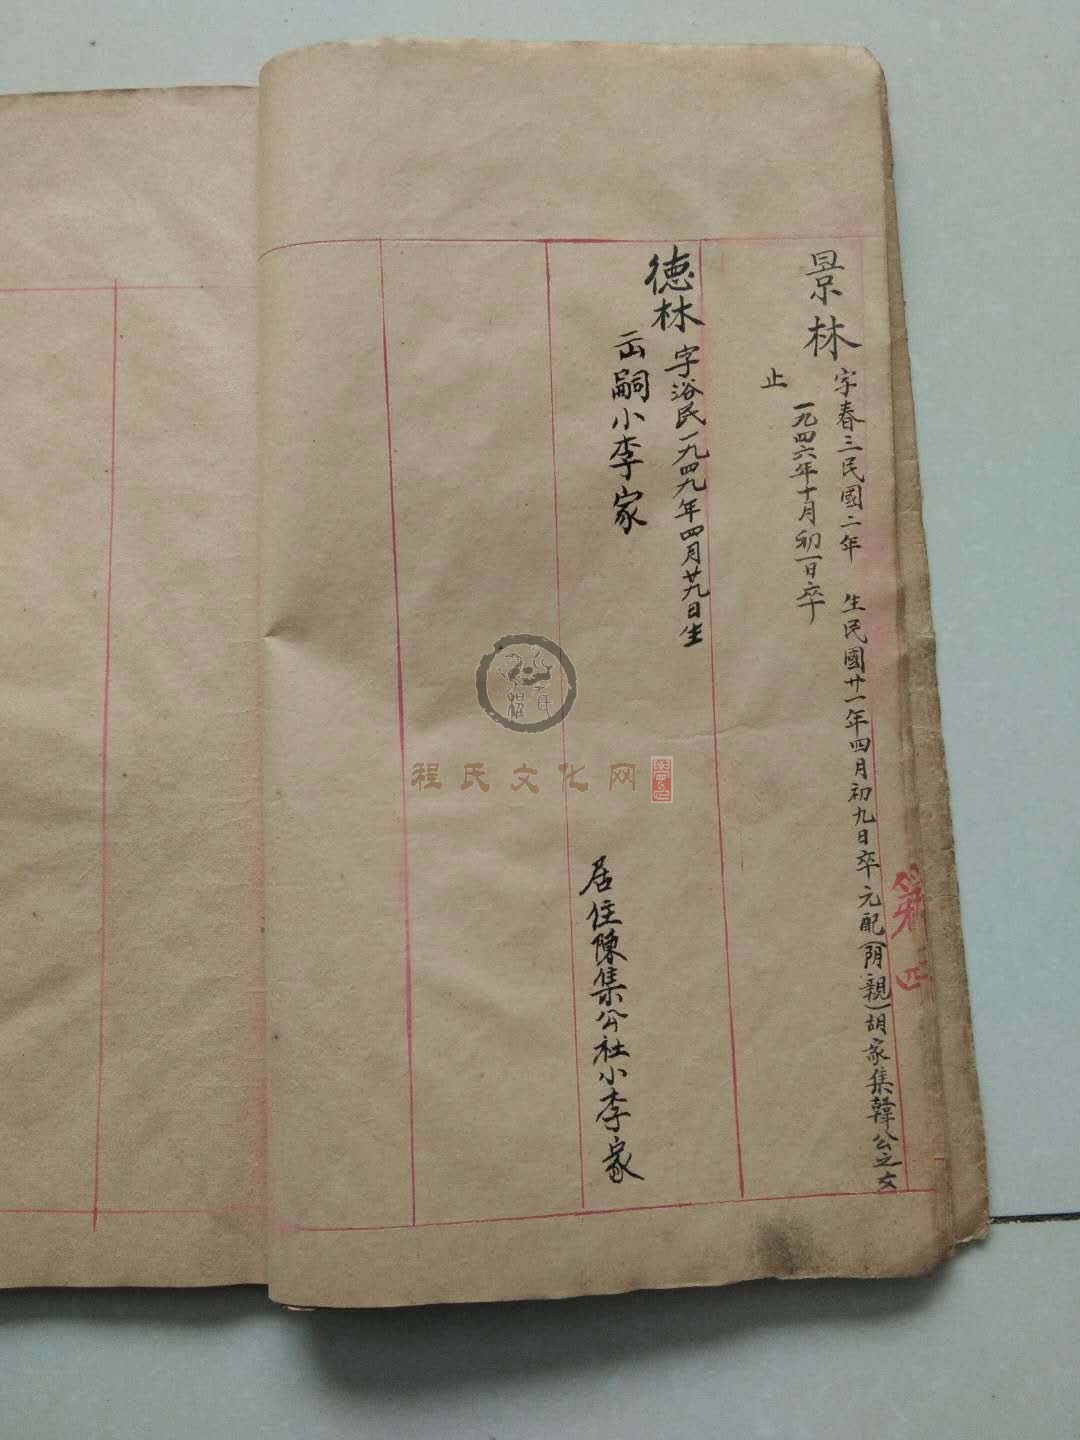 第四
景林 字春三民國二年 生民國廿一年四月初九日卒元配(阴親)胡家集韓公之女
一九四六年十月初一日卒
止
德林 字浴民一九四九年四月廿九日生
出嗣小李家
居住陳集公社小李家
程氏文化网